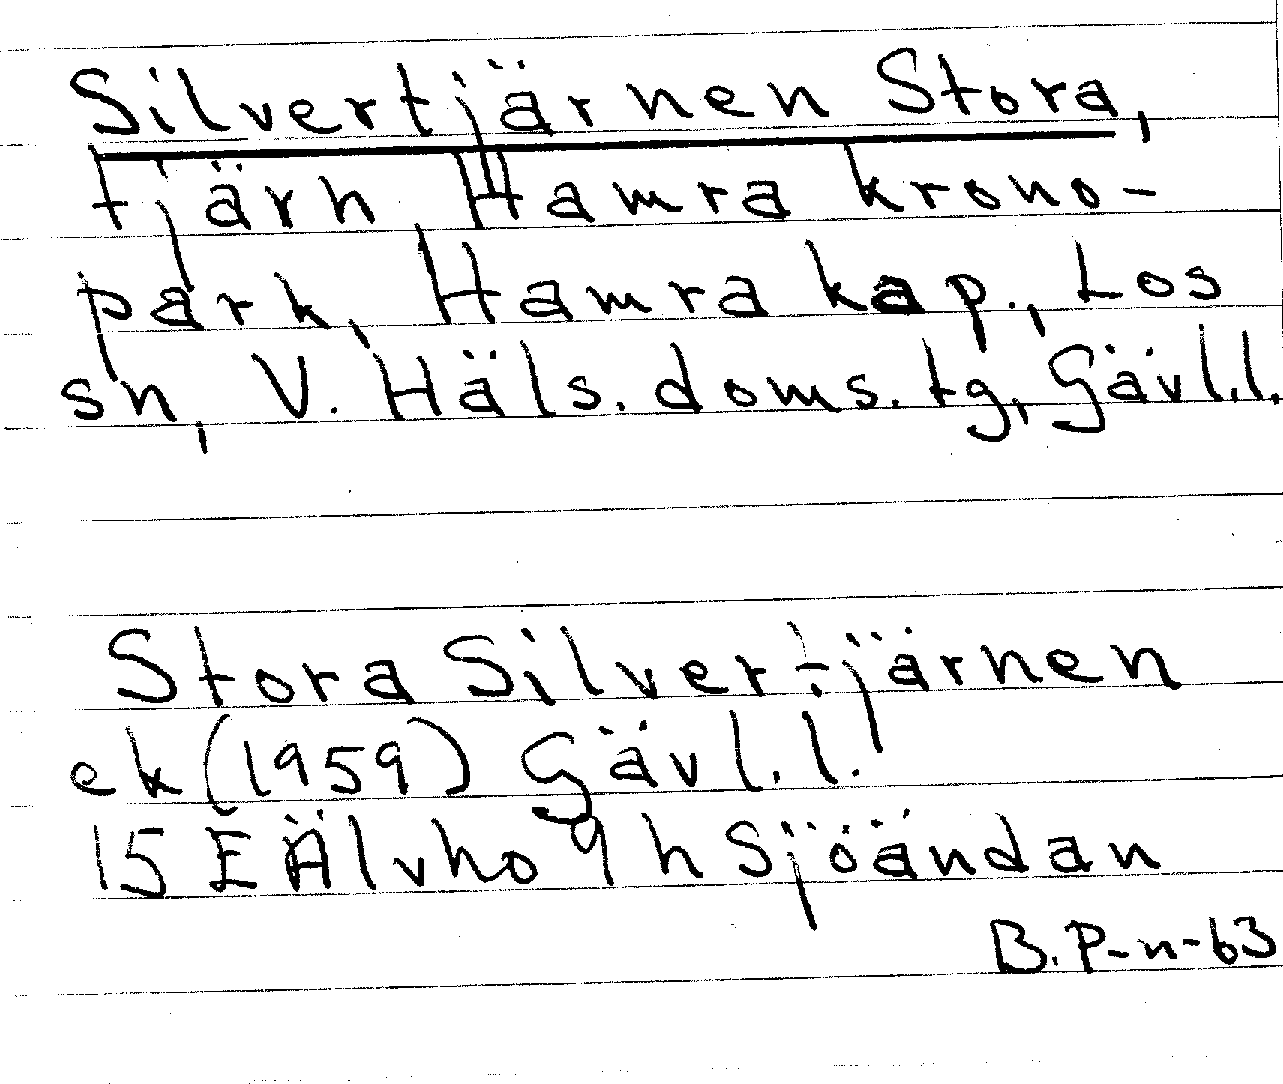 Silvertjärnen Stora,
tjärn Hamra krono-
park, Hamra kap., Los
sn, V. Häls. doms. tg, Gävl.l.
Stora Silvertjärnen
ek (1959) Gävl.l.
15 E Älvho 9 h Sjöändan
B. P-n-63